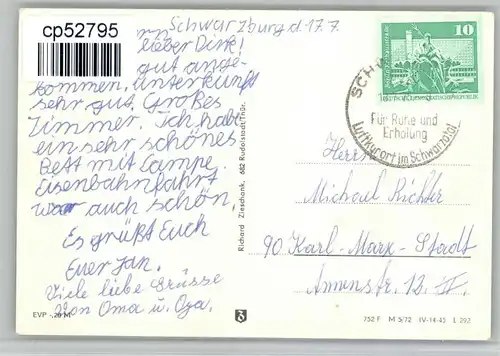 cp52795
Schwarzburg d. 17.7.
lieber Dirk!
gut ange-
kommen, Unterkunft
sehr gut. Großes
Zimmer. Ich habe
ein sehr schönes
Bett mit Lampe.
Eisenbahnfahrt
war auch schön.
Es grüßt Euch
Euer Jan.
Viele liebe Grüsse
von Oma u. Opa.
EVP -,20 M
Richard Zieschank, 682 Rudolstadt/Thür.
10
SCHW
Für Ruhe und
Erholung
Luftkurort im Schwarzatal
Herrn
Michael Richter
90 Karl-Marx-Stadt
Annenstr. 12 IV.
752 F M 5/72 IV-14-45 L 292